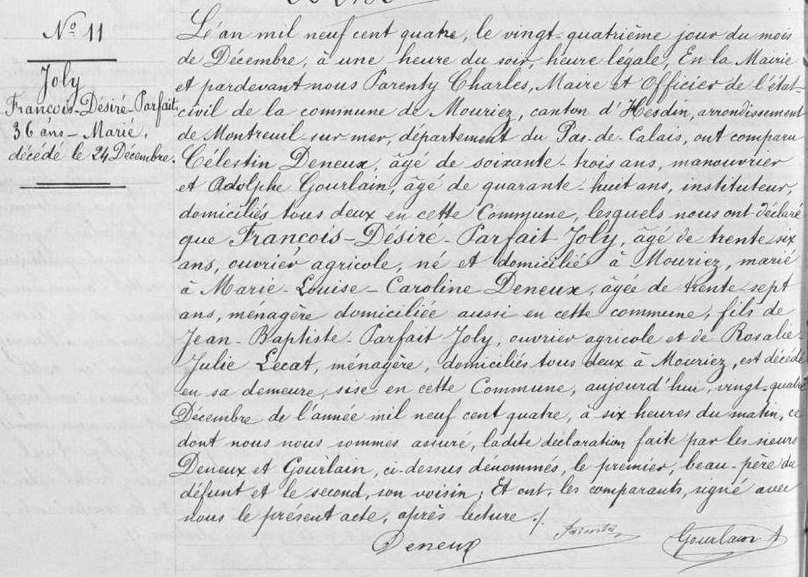 N° 11
Joly
François-Désiré-Parfait.
36 ans - Marié.
décédé le 24 Décembre.
L'an mil neuf cent quatre, le vingt-quatrième jour du mois
de Décembre, à une heure du soir, heure légale, En la Mairie
et pardevant nous Parenty Charles, Maire et Officier de l'état-
civil de la commune de Mouriez, canton d'Hesdin, arrondissement
de Montreuil-sur-mer, département du Pas-de-Calais, ont comparu
Célestin Deneux, âgé de soixante-trois ans, manouvrier
et Adolphe Gourlain, âgé de quarante-huit ans, instituteur,
domiciliés tous deux en cette Commune, lesquels nous ont déclaré
que François-Désiré-Parfait Joly, âgé de trente-six
ans, ouvrier agricole, né et domicilié à Mouriez, marié
à Marie-Louise-Caroline Deneux, âgée de trente-sept
ans, ménagère domiciliée aussi en cette commune, fils de
Jean-Baptiste-Parfait Joly, ouvrier agricole et de Rosalie
Julie Lecat, ménagère, domiciliés tous deux à Mouriez, est décédé
en sa demeure, sise en cette Commune, aujourd'hui, vingt-quatre
Décembre de l'année mil neuf cent quatre, à six heures du matin, ce
dont nous nous sommes assuré, ladite déclaration faite par les sieurs
Deneux et Gourlain, ci-dessus dénommés, le premier, beau-père du
défunt et le second, son voisin; Et ont, les comparants, signé avec
nous le présent acte, après lecture ./.
Deneux Parenty Gourlain A